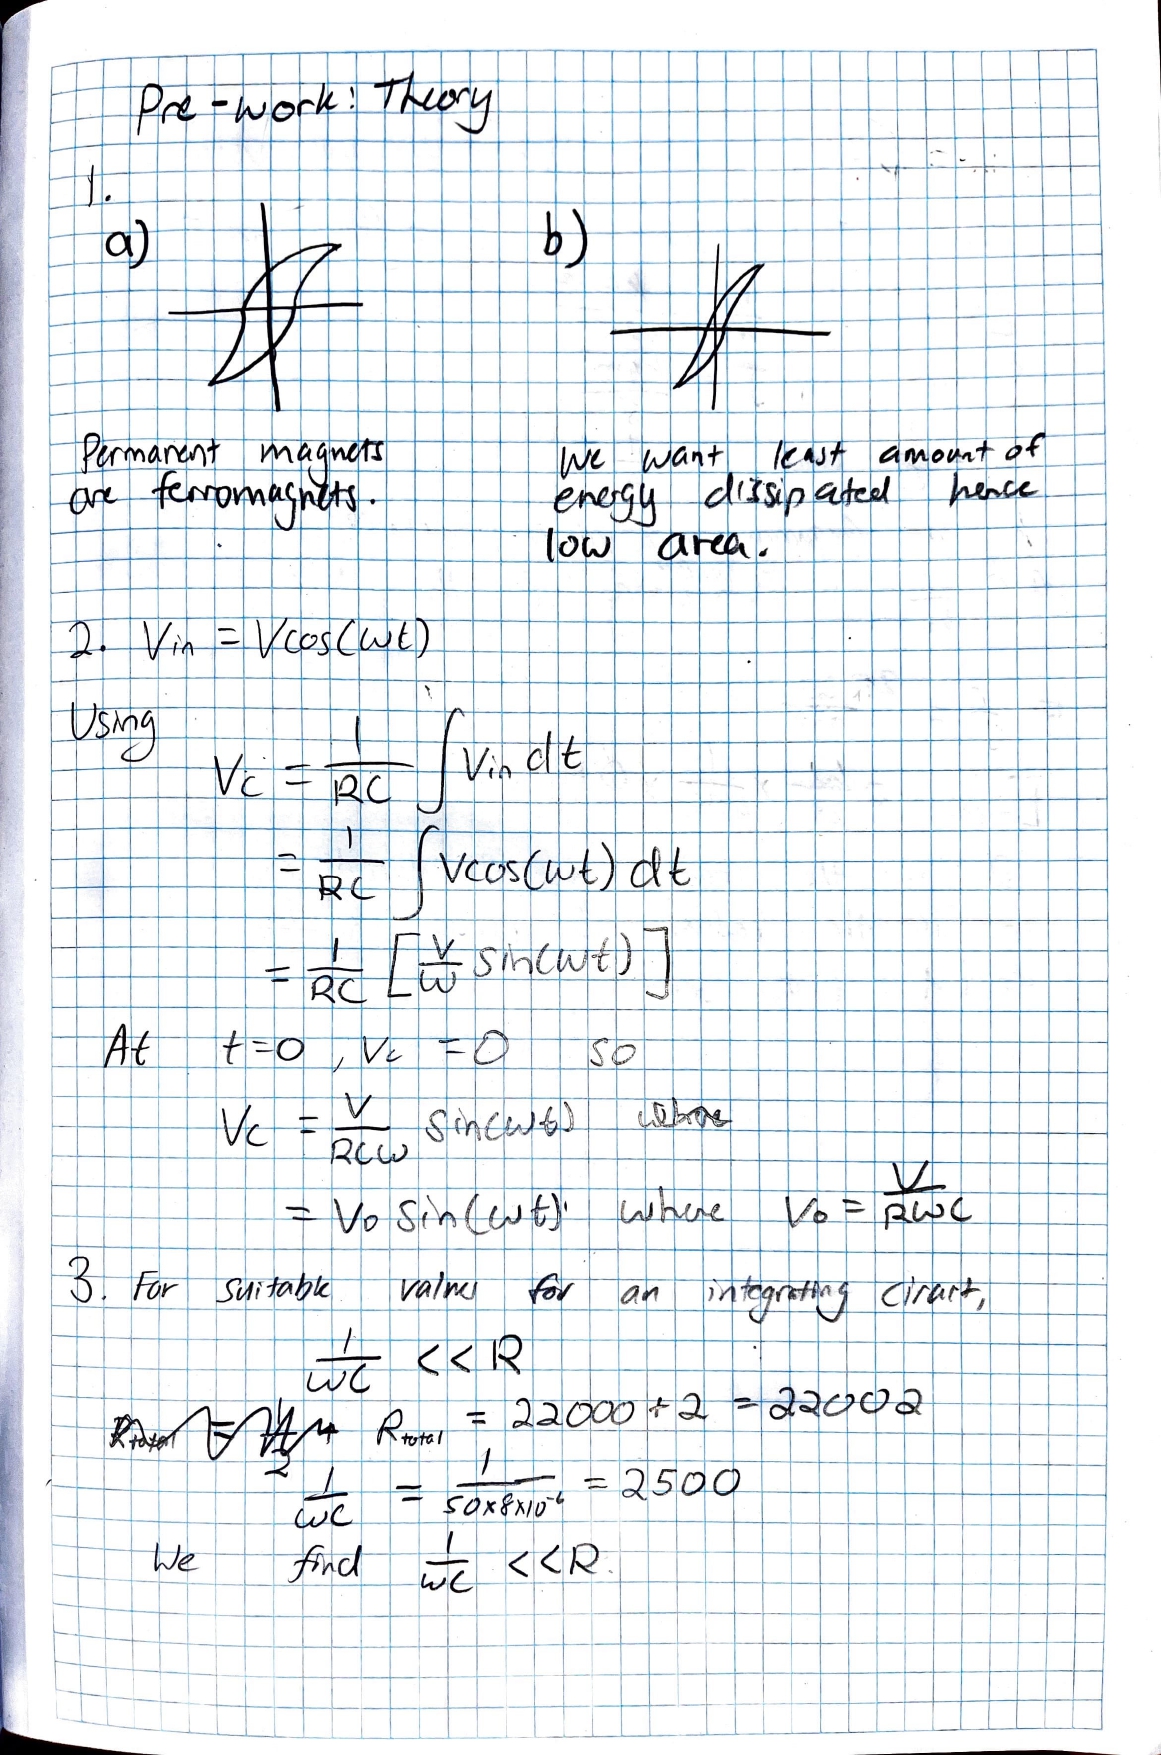 Pre-work: Theory
1.
a)
b)
Permanent magnets
are ferromagnets.
We want least amount of
energy dissipated hence
low area.
2. Vin = Vcos(ωt)
Using
Vc = 1/RC ∫ Vin dt
= 1/RC ∫ Vcos(ωt) dt
= 1/RC [V/ω sin(ωt)]
At t=0, Vc = 0 so
Vc = V/RCω sin(ωt) where
= V₀ sin(ωt) where V₀ = V/RωC
3. For suitable values for an integrating circuit,
1/ωC << R
Rtotal = 22000 + 2 = 22002
1/ωC = 1/50×8×10⁻⁶ = 2500
We find 1/ωC << R.